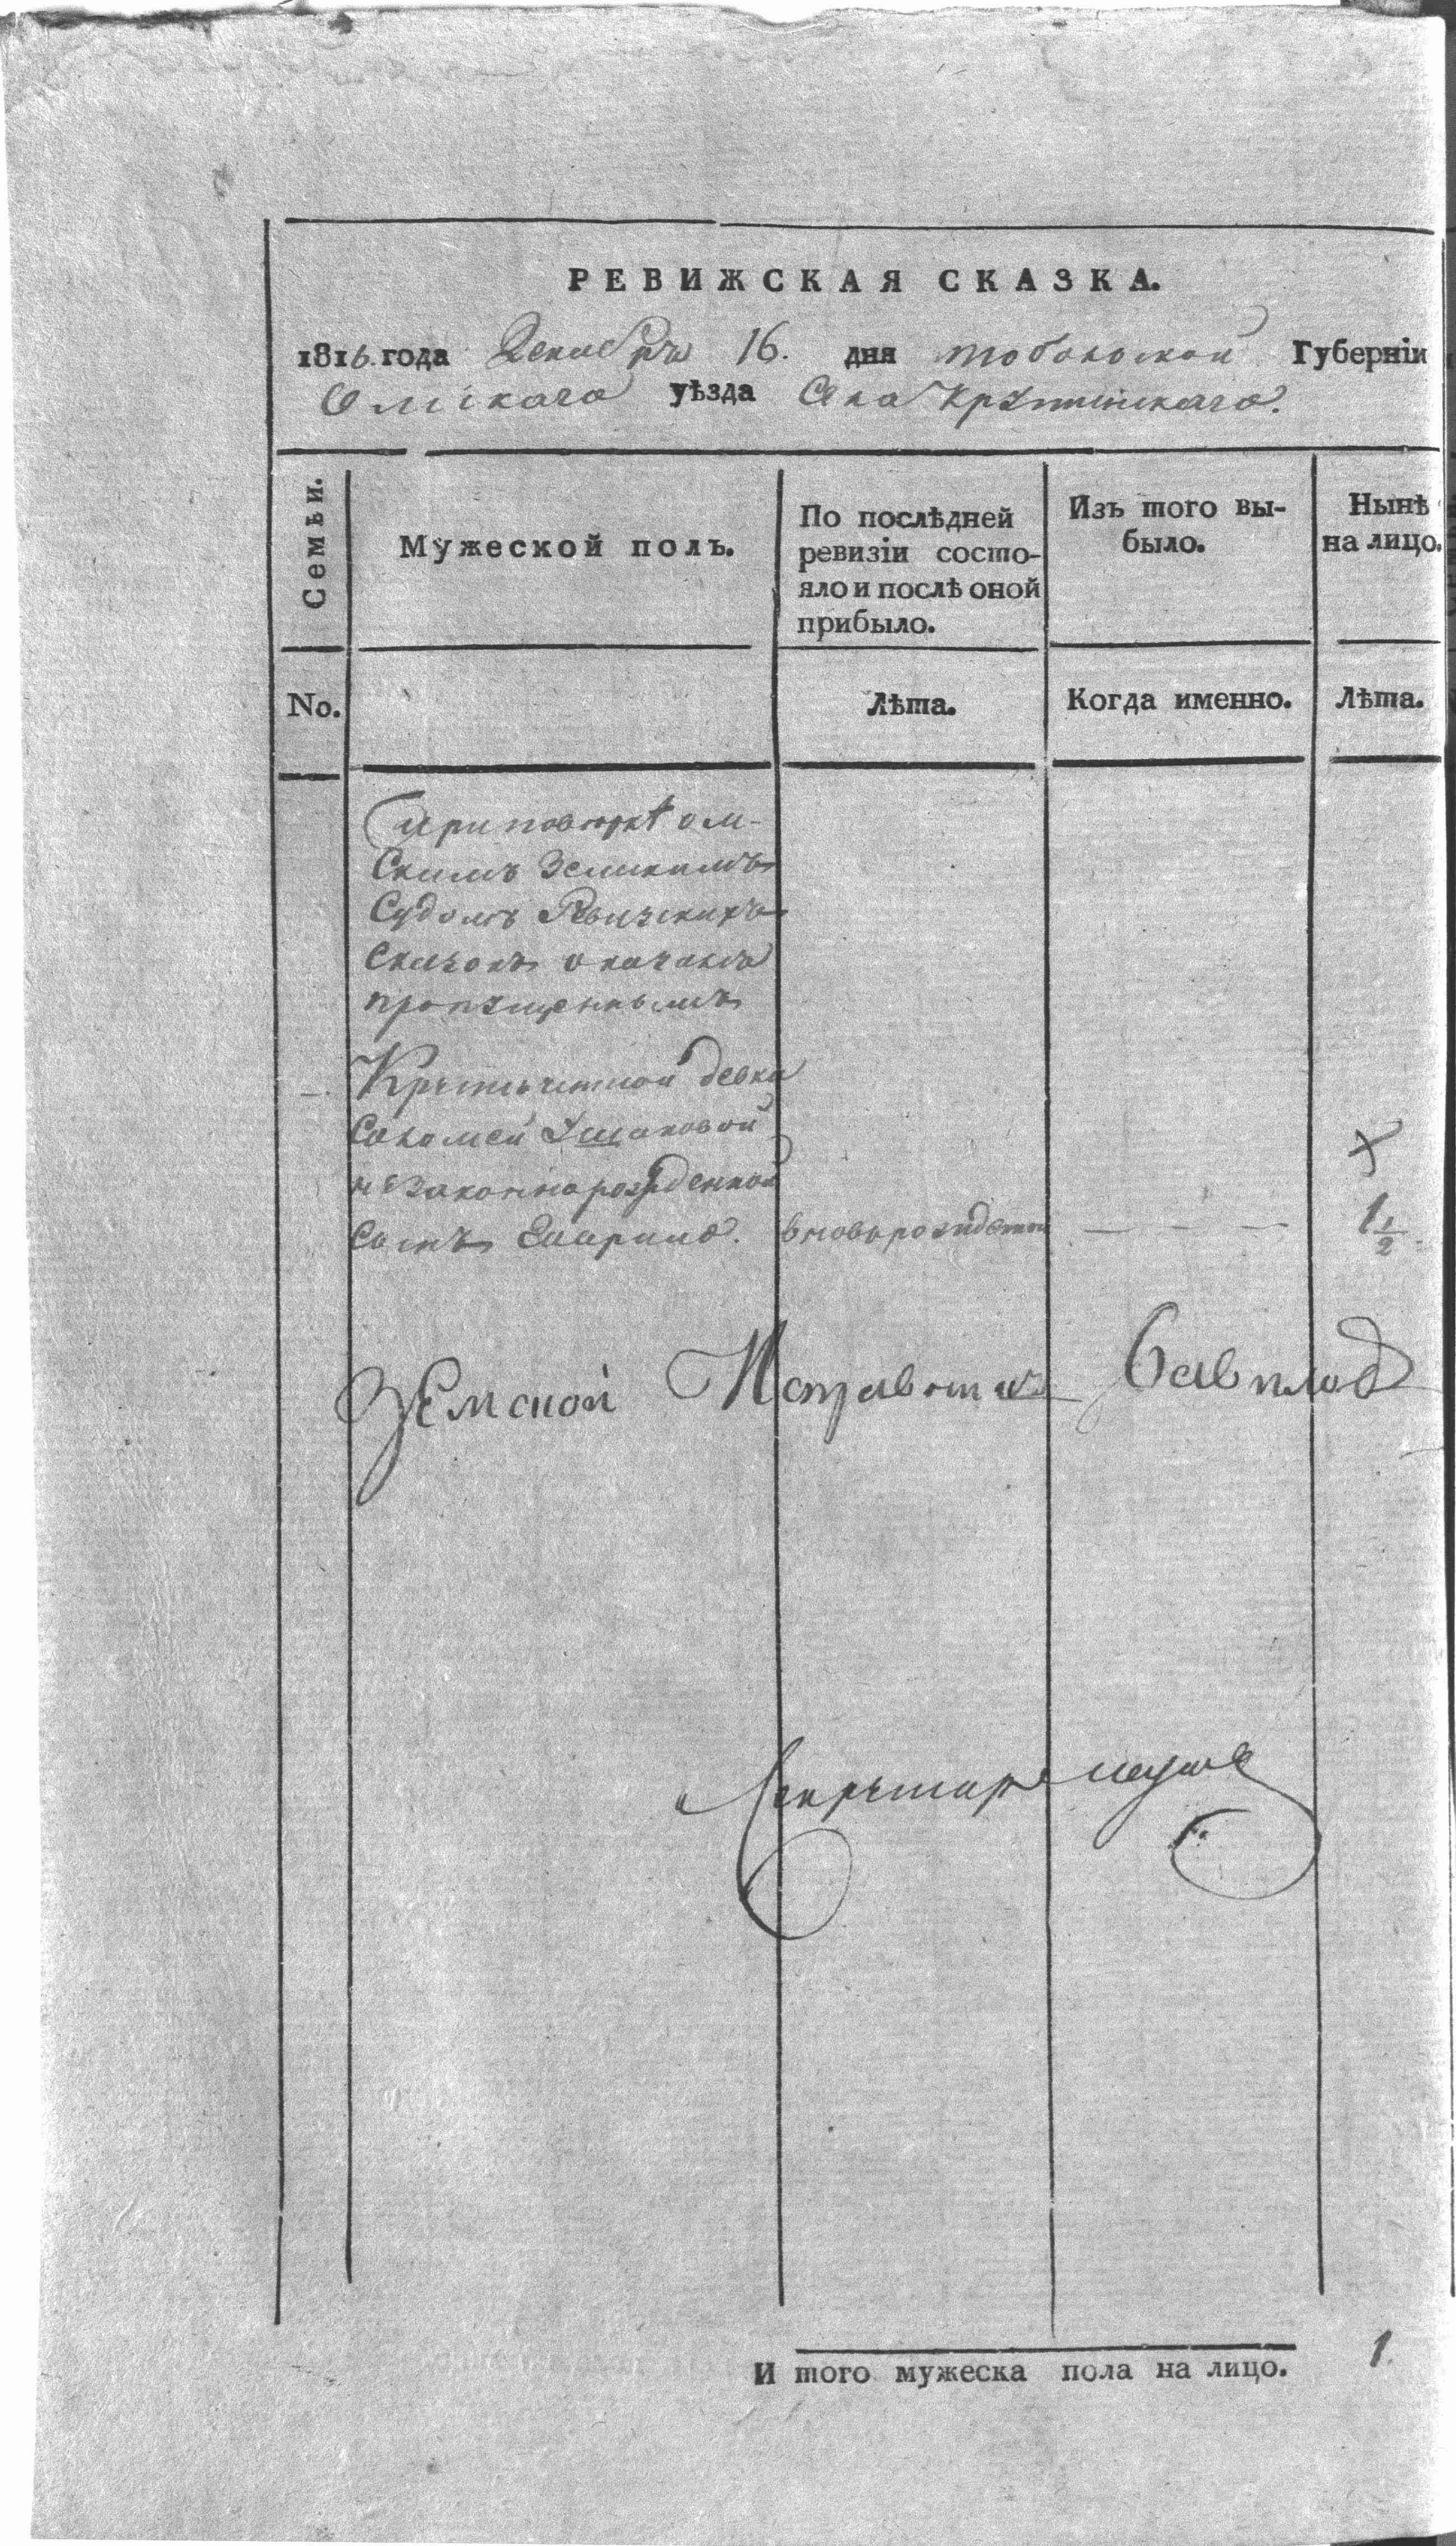 РЕВИЖСКАЯ СКАЗКА.
1816. года Декабръ 16. дня тобольской Губерніи
Омскаго уѣзда Села Крутинскаго.
Семьи.
Мужеской полъ.
По послѣдней ревизіи состо-
яло и послѣ оной прибыло.
Изъ того вы-
было.
Нынѣ
на лицо.
No.
Лѣта.
Когда именно.
Лѣта.
При поверке ом-
Скимъ Земскимъ
Судомъ Ревизскихъ
Сказокъ оказался
пропущеннымъ
Крестьянской девки
Соломеи Ушаковой
незаконнорожденной
Сынъ вновьрожденной — — — 1 1/2
Земской Исправникъ
Секретарь
И того мужеска пола на лицо. 1.